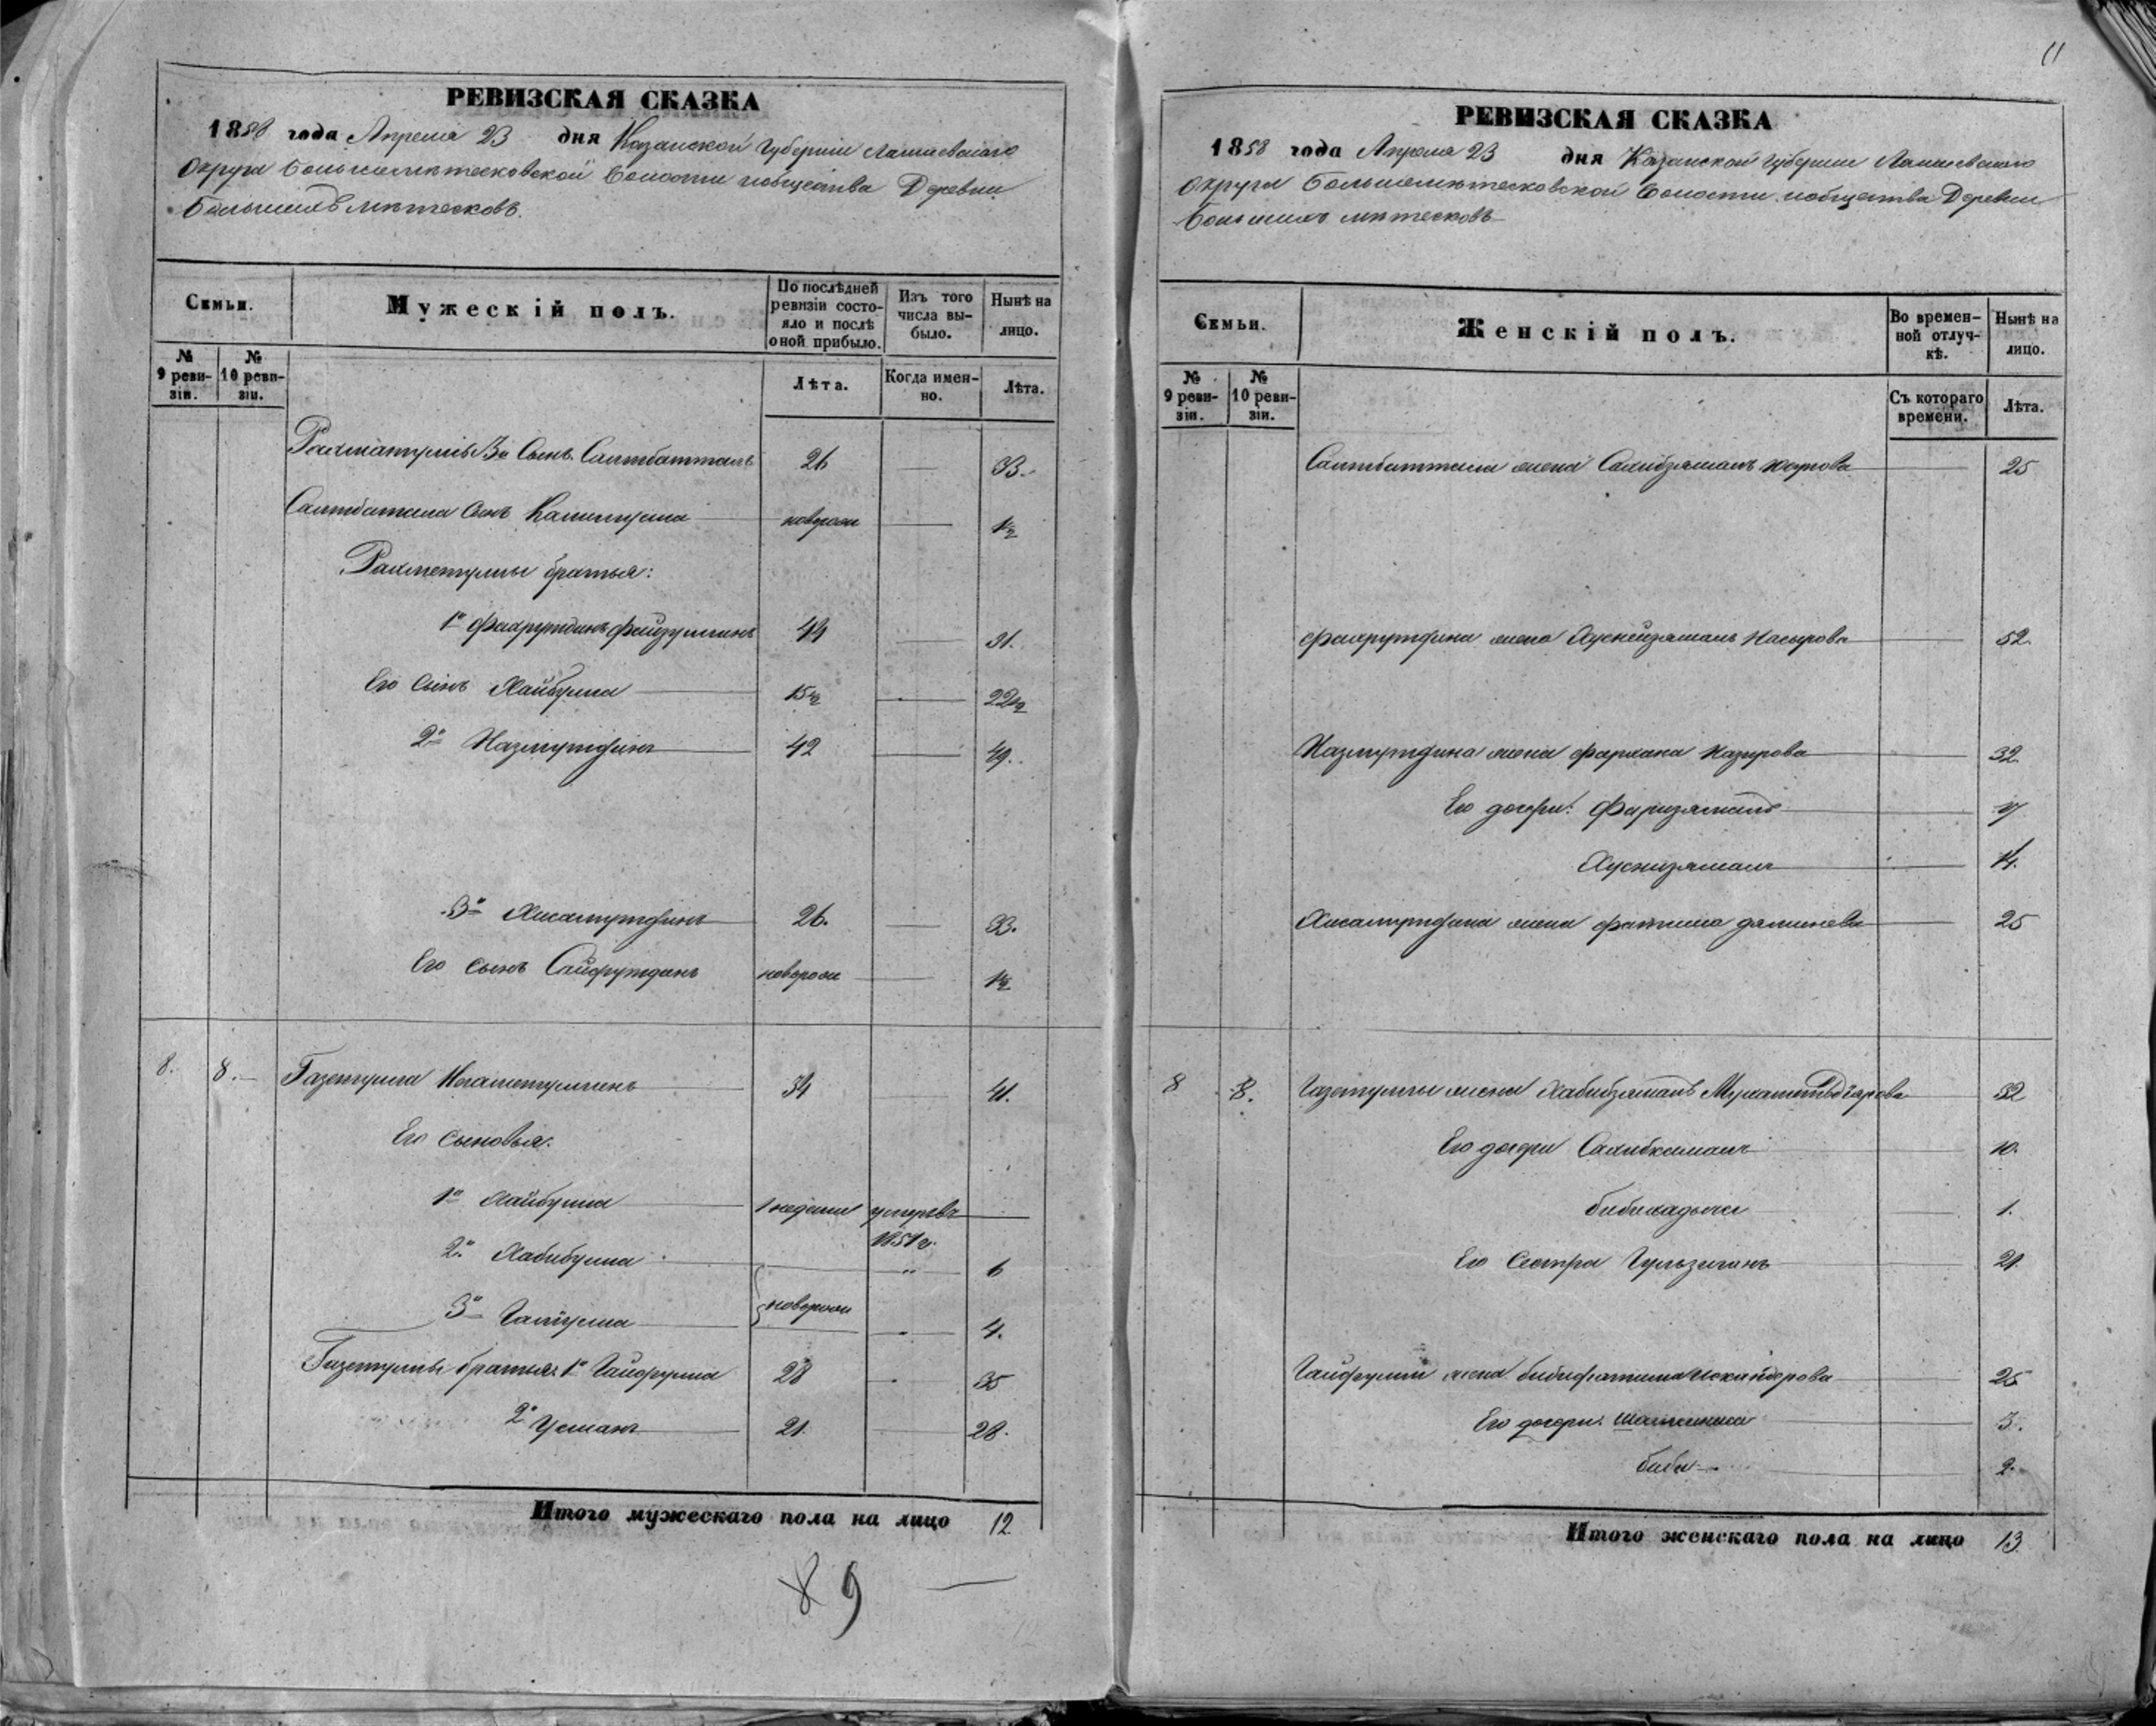 11
РЕВИЗСКАЯ СКАЗКА
1858 года Апреля 23 дня Казанской Губернии Лаишевскаго
Округа Большемѣтесковской Волости и общества Деревни
Большихъ Мѣтесковъ.
Семьи.
Мужескій полъ.
По послѣдней ревизіи состояло и послѣ оной прибыло.
Изъ того числа выбыло.
Нынѣ на лицо.
№ 9 ревизіи.
№ 10 ревизіи.
Лѣта.
Когда именно.
Лѣта.
Рахматуллы 3й Сынъ Саитбатталъ 26 — 33.
Саитбаттала Сынъ новорож — 1/2
Рахметуллы братья:
1й Фахрутдинъ Файзуллинъ 44 — 31.
Его Сынъ Хайбулла 15 1/2 — 22 1/2
2й Назмутдинъ 42 — 49.
3й Хисамутдинъ 26. — 33.
Его Сынъ Сайфутдинъ новорож — 1/2
8. 8. Газетулла Негаметуллинъ 34 — 41.
Его Сыновья:
1й Хайбулла 1 недели умеръ въ 1851 г. —
2й Хабибулла " 6
3й новорож 4.
Газетуллы братья: 1й Гайфулла 28 35
2й Усманъ 21. — 28.
Итого мужескаго пола на лицо 12
8 9
РЕВИЗСКАЯ СКАЗКА
1858 года Апреля 23 дня Казанской Губернии Лаишевскаго
Округа Большемѣтесковской Волости и общества Деревни
Большихъ Мѣтесковъ
Семьи.
Женскій полъ.
Во временной отлучкѣ.
Нынѣ на лицо.
№ 9 ревизіи.
№ 10 ревизіи.
Съ котораго времени.
Лѣта.
Саитбаттала жена Сахибзямалъ — 25
Фахрутдина жена Хуснизямалъ Насырова — 52.
Назмутдина жена Фархана Назырова — 32.
Его дочери: Фаризямалъ — 17
Хуснизямалъ — 14.
Хисамутдина жена Фатима — 25
8 8. Газетуллы жена Хабибзямалъ — 32
Его дочери Сахибкамалъ — 10.
Бибихадыча — 1.
Его Сестра — 21.
Гайфуллы жена Бибифатима Искандерова — 25
Его дочери: — 3.
Биби — 2.
Итого женскаго пола на лицо 13